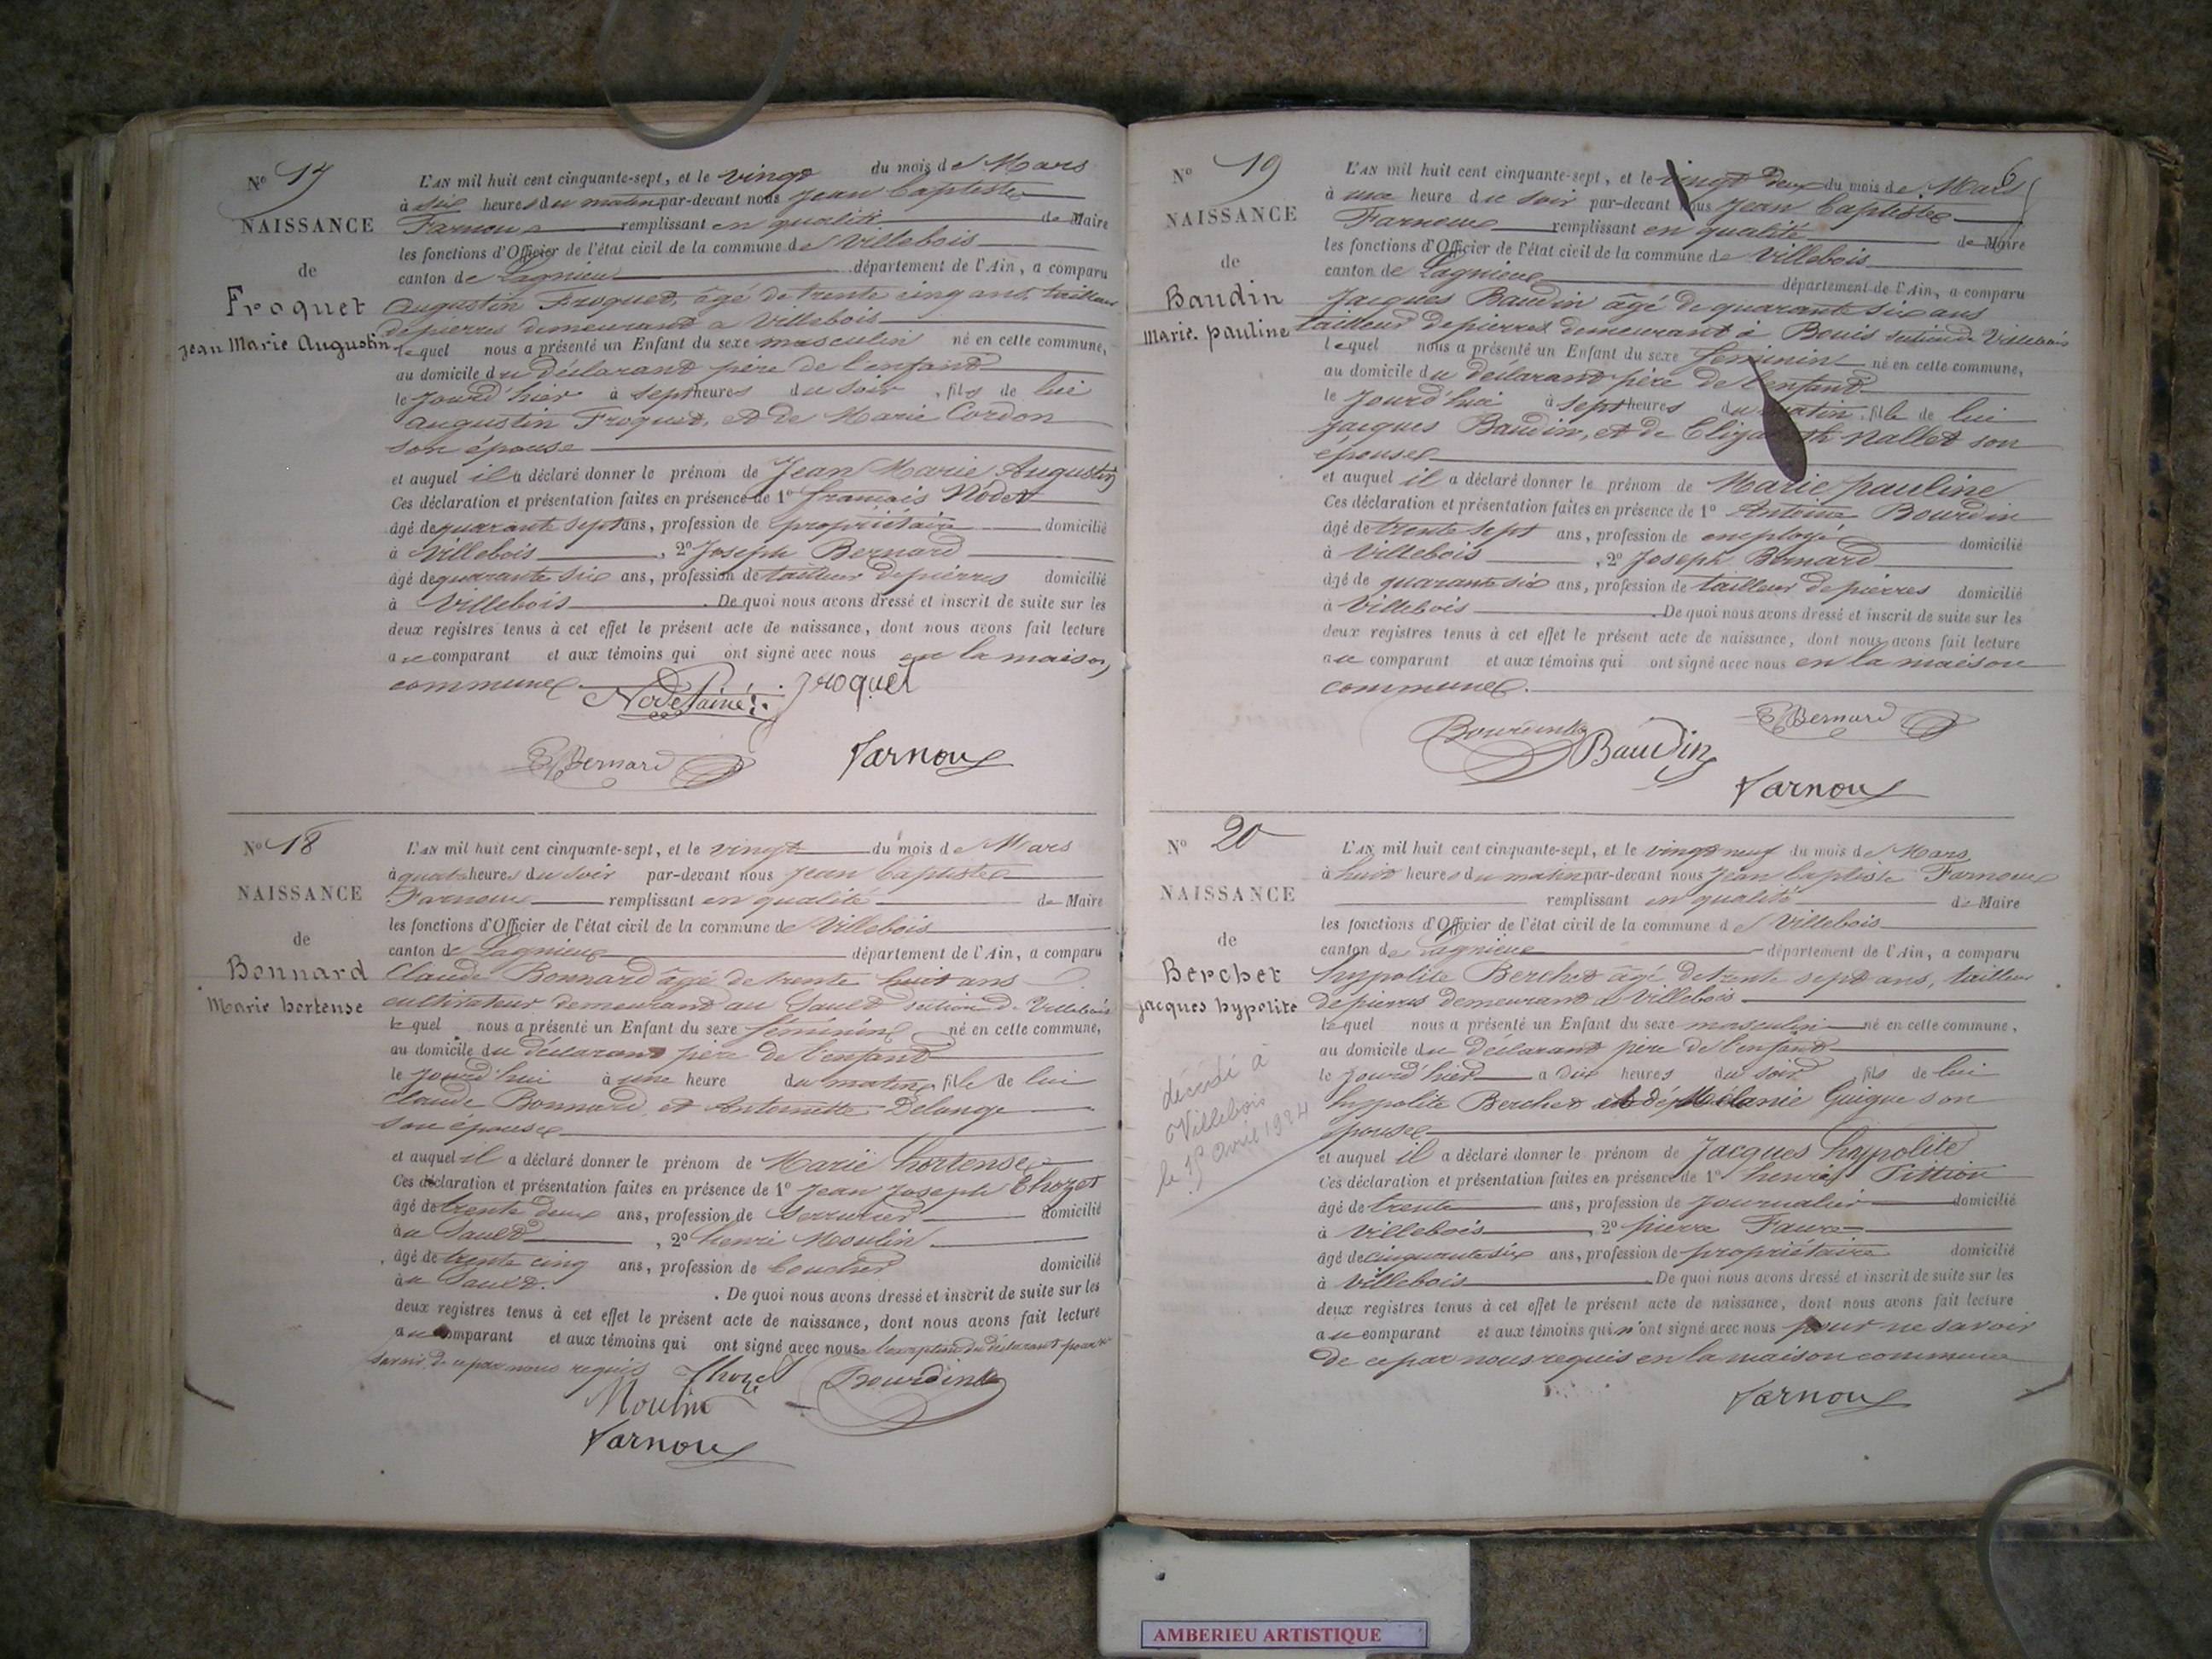 No 17
NAISSANCE
de
Froquet
Jean Marie Augustin
L'AN mil huit cent cinquante-sept, et le vingt du mois de Mars
à six heures du matin par-devant nous Jean Baptiste
Farnoux remplissant en qualité de Maire
les fonctions d'Officier de l'état civil de la commune de Villebois
canton de Lagnieu département de l'Ain, a comparu
Augustin Froquet, âgé de trente cinq ans, tailleur
de pierres demeurant a Villebois
lequel nous a présenté un Enfant du sexe masculin né en cette commune,
au domicile du déclarant père de l'enfant
le jourd'hier à sept heures du soir, fils de lui
Augustin Froquet, et de Marie Cordon
son épouse
et auquel il a déclaré donner le prénom de Jean Marie Augustin
Ces déclaration et présentation faites en présence de 1o français Nodet
âgé de quarante sept ans, profession de propriétaire domicilié
à Villebois, 2o Joseph Bernard
âgé de quarante six ans, profession de tailleur de pierres domicilié
à Villebois. De quoi nous avons dressé et inscrit de suite sur les
deux registres tenus à cet effet le présent acte de naissance, dont nous avons fait lecture
au comparant et aux témoins qui ont signé avec nous en la maison
commune
Nodet ainé Froquet
Bernard Farnoux
No 18
NAISSANCE
de
Bonnard
Marie hortense
L'AN mil huit cent cinquante-sept, et le vingt du mois de Mars
à quatre heures du soir par-devant nous Jean baptiste
Farnoux remplissant en qualité de Maire
les fonctions d'Officier de l'état civil de la commune de Villebois
canton de Lagnieux département de l'Ain, a comparu
Claude Bonnard âgé de trente huit ans
cultivateur demeurant au Sault section de Villebois
lequel nous a présenté un Enfant du sexe féminin né en cette commune,
au domicile du déclarant père de l'enfant
le jourd'hui à une heure du matin, fille de lui
Claude Bonnard et Antoinette Delange
son épouse
et auquel il a déclaré donner le prénom de Marie hortense
Ces déclaration et présentation faites en présence de 1o Jean Joseph Thozet
âgé de trente deux ans, profession de Serrurier domicilié
au Sault, 2o henri Moulin
âgé de trente cinq ans, profession de boucher domicilié
au Sault. De quoi nous avons dressé et inscrit de suite sur les
deux registres tenus à cet effet le présent acte de naissance, dont nous avons fait lecture
au comparant et aux témoins qui ont signé avec nous l'exception du déclarant pour ne
savoir, de ce par nous requis Thozet
Moulin Bourdin
Farnoux
6
No 19
NAISSANCE
de
Baudin
Marie pauline
L'AN mil huit cent cinquante-sept, et le vingt deux du mois de Mars
à une heure du soir par-devant nous Jean baptiste
Farnoux remplissant en qualité de Maire
les fonctions d'Officier de l'état civil de la commune de Villebois
canton de Lagnieux département de l'Ain, a comparu
Jacques Baudin âgé de quarante six ans
tailleur de pierres demeurant à Bouis section de Villebois
lequel nous a présenté un Enfant du sexe féminin né en cette commune,
au domicile du déclarant père de l'enfant
le jourd'hui à sept heures du matin, fille de lui
Jacques Baudin, et de Elizabeth Nallet son
épouse
et auquel il a déclaré donner le prénom de Marie pauline
Ces déclaration et présentation faites en présence de 1o Antoine Bourdin
âgé de trente sept ans, profession de employé domicilié
à Villebois, 2o Joseph Bernard
âgé de quarante six ans, profession de tailleur de pierres domicilié
à Villebois. De quoi nous avons dressé et inscrit de suite sur les
deux registres tenus à cet effet le présent acte de naissance, dont nous avons fait lecture
au comparant et aux témoins qui ont signé avec nous en la maison
commune.
Bourdin Baudin Bernard
Farnoux
No 20
NAISSANCE
de
Berchet
Jacques hypolite
décédé à
Villebois
le 15 avril 1924
L'AN mil huit cent cinquante-sept, et le vingt neuf du mois de Mars
à huit heures du matin par-devant nous Jean baptiste Farnoux
remplissant en qualité de Maire
les fonctions d'Officier de l'état civil de la commune de Villebois
canton de Lagnieux département de l'Ain, a comparu
hyppolite Berchet âgé de trente sept ans, tailleur
de pierres demeurant a Villebois
lequel nous a présenté un Enfant du sexe masculin né en cette commune,
au domicile du déclarant père de l'enfant
le jourd'hier à dix heures du soir, fils de lui
hyppolite Berchet et de Mélanie Guigue son
épouse
et auquel il a déclaré donner le prénom de Jacques hyppolite
Ces déclaration et présentation faites en présence de 1o henri Pittion
âgé de trente ans, profession de journalier domicilié
à Villebois, 2o pierre Faure
âgé de cinquante six ans, profession de propriétaire domicilié
à Villebois. De quoi nous avons dressé et inscrit de suite sur les
deux registres tenus à cet effet le présent acte de naissance, dont nous avons fait lecture
au comparant et aux témoins qui n'ont signé avec nous pour ne savoir
de ce par nous requis en la maison commune
Farnoux
AMBERIEU ARTISTIQUE